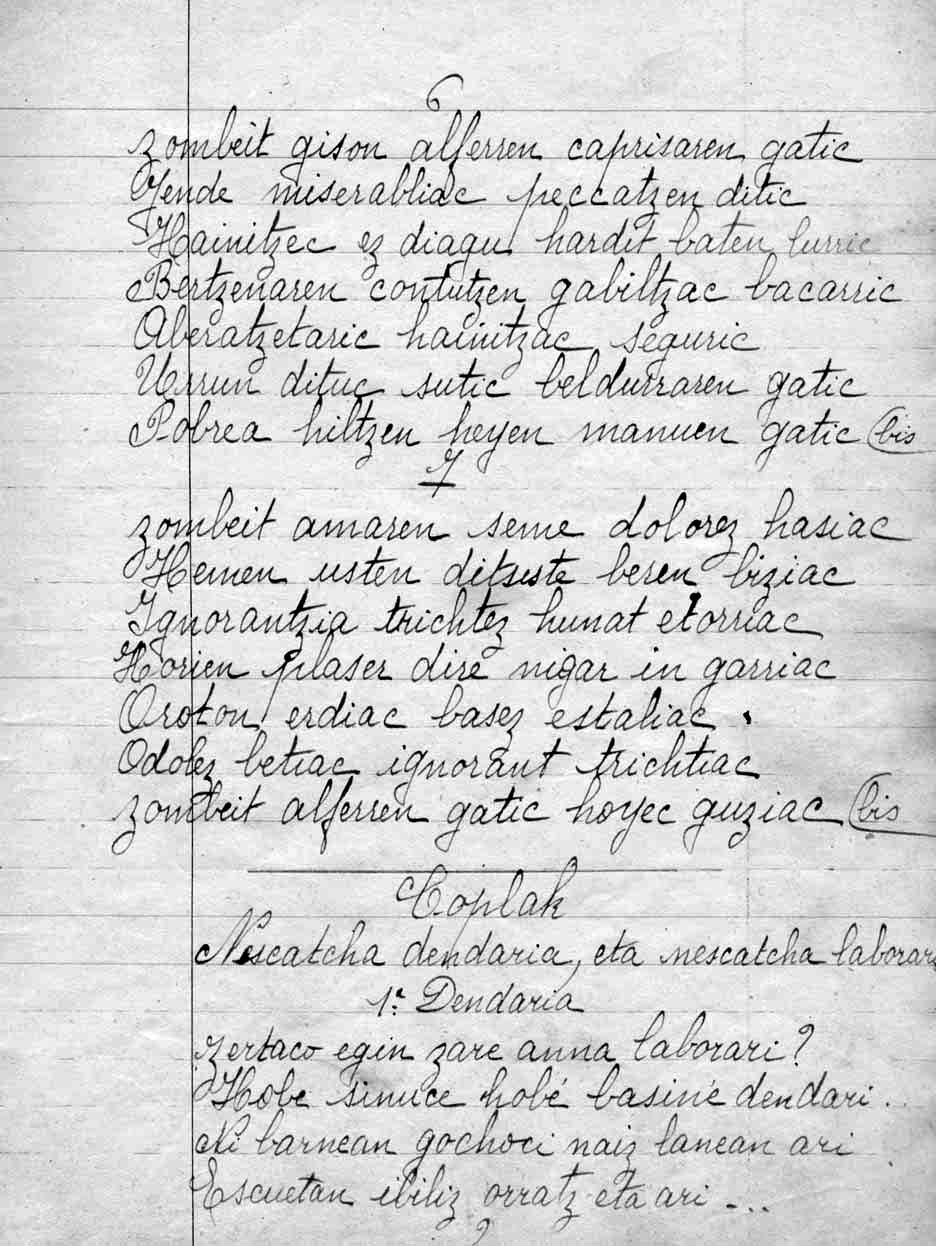 6
zombeit gison alferren caprisaren gatic
Jende miserabliac peccatzen ditic
Hainitzec ez diagu hardit baten lurric
Bertzenaren contutzen gabiltzac bacarric
Aberatzetaric hainitzac seguric
Urrun dituc sutic beldurraren gatic
Pobrea hiltzen heyen manuen gatic (bis
7
zombeit amaren seme dolorez hasiac
Hemen usten ditsiste beren biziac
Ignorantzia trichtez hunat etorriac
Horien plaser dire nigar in garriac
Oroton erdiac basez estaliac
Odolez betiac ignorant trichtiac
zombeit alferren gatic hoyec guziac (bis
Coplak
Nescatcha dendaria, eta nescatcha laborari
1º Dendaria
Zertaco egin zare anna laborari?
Hobe sinuce hobé basiné dendari.
Ni barnean gochoci naiz lanean ari
Escuetan ibiliz orratz eta ari -...
2